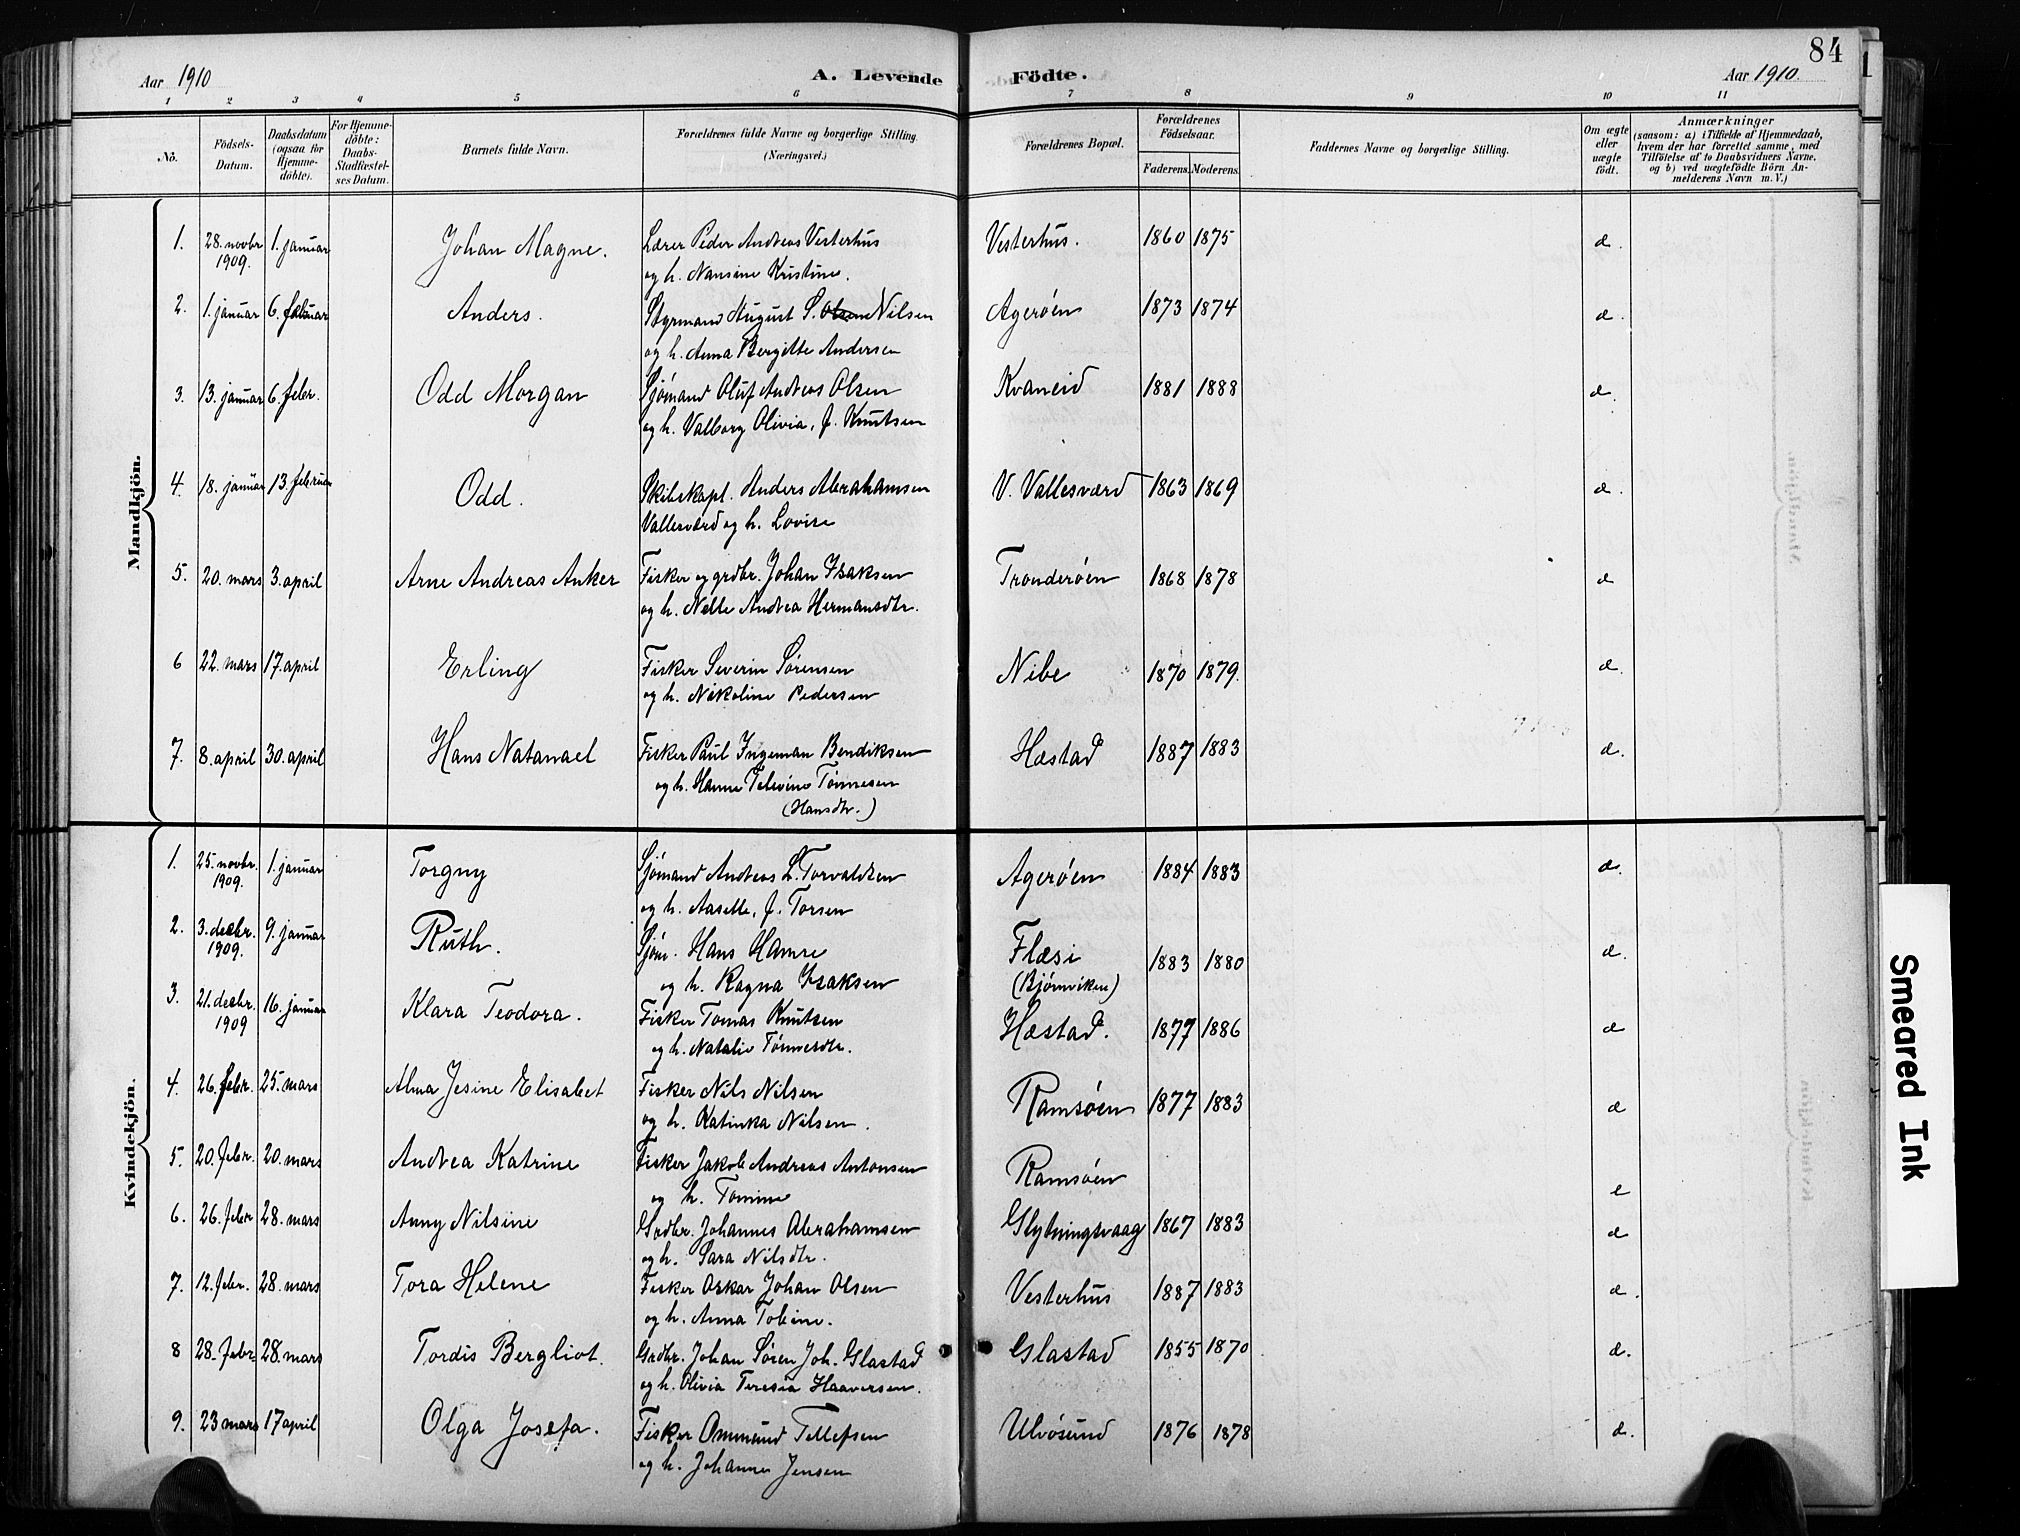 84
Aar 1910
A. Levende Födte.
Aar 1910.
1 2 3 4 5 6 7 8 9 10 11
No.
Födsels-Datum.
Daabsdatum (ogsaa for Hjemme-döbte).
For Hjemme-döbte: Daabs-Stadfæstel-ses Datum.
Barnets fulde Navn.
Forældrenes fulde Navne og borgerlige Stilling.
(Næringsvei.)
Forældrenes Bopæl.
Forældrenes Födselsaar.
Faderens. Moderens.
Faddernes Navne og borgerlige Stilling.
Om ægte eller uægte födt.
Anmærkninger
(saasom: a) i Tilfælde af Hjemmedaab,
hvem der har forrettet samme, med
Tilföielse af to Daabsvidners Navne,
og b) ved uægtefödte Börn An-
melderens Navn m. V.)
Mandkjön.
1. 28. novbr 1909. 1. januar Johan Magne. Lærer Peder Andreas Vesterhus Vesterhus. 1860 1875 æ.
og h. Nansine Kristine.
2. 1. januar 6. februar Anders. Styrmand August S. Olsen Nilsen Agerøen 1873 1874 æ.
og h. Anna Bergitte Andersen
3. 13. januar 6. febr. Odd Morgan Sjømand Oluf Andreas Olsen Kvaneid 1881 1888 æ.
og h. Valborg Olivia, f. Knutsen
4. 18. januar 13. februar Odd. Skibskapt. Anders Abrahamsen V. Vallesværd 1863 1869 æ.
Vallesværd og h. Lovise
5. 20. mars 3. april Arne Andreas Anker Fisker og grdbr. Johan Isaksen Tronderøen 1868 1878 æ
og h. Nelle Andrea Hermansdtr.
6 22. mars 17. april Erling Fisker Severin Sørensen Nibe 1870 1879. æ.
og h. Nikoline Pedersen
7. 8. april 30. april Hans Natanael Fisker Paul Ingeman Bendiksen Hæstad 1887 1883 æ.
og h. Hanne Tønnesen
(Hansdtr.)
Kvindekjön.
1. 25. novbr. 1909. 1. januar Torgny Sjømand Andreas L. Torvaldsen Agerøen 1884 1883 æ.
og h. Aaselle, f. Torsen
2. 3. decbr. 1909. 9. januar Ruth. Sjøm. Hans Hamre Flæsi 1883 1880 æ.
og h. Ragna Isaksen (Bjørnviken)
3. 21. decbr. 1909 16. januar Klara Teodora. Fisker Tomas Knutsen Hæstad. 1877 1886 æ
og h. Natalie Tønnesdtr.
4. 26. febr. 25. mars Alma Jesine Elisabet Fisker Nils Nilsen Ramsøen 1877 1883 æ
og h. Katinka Nilsen.
5. 20. febr. 20. mars Andrea Katrine Fisker Jakob Andreas Antonsen Ramsøen
og h. Tomine
6. 26. febr 28. mars Anny Nilsine Grdbr. Johannes Abrahamsen Glybningsvaag 1867 1883 æ
og h. Sara Nilsdtr.
7. 12. febr. 28. mars Tora Helene Fisker Oskar Johan Olsen Vesterhus 1887 1883 æ.
og h. Anna Tobine.
8 28. febr. 28. mars Tordis Bergliot. Grdbr. Johan Søren Joh. Glastad Glastad 1855 1870 æ.
og h. Olivia Teresia Haaversen.
9. 23 mars 17 april Olga Josefa. Fisker Ommund Tellefsen Ulvøsund 1876 1878 æ.
og h. Johanne Jensen
Smeared Ink